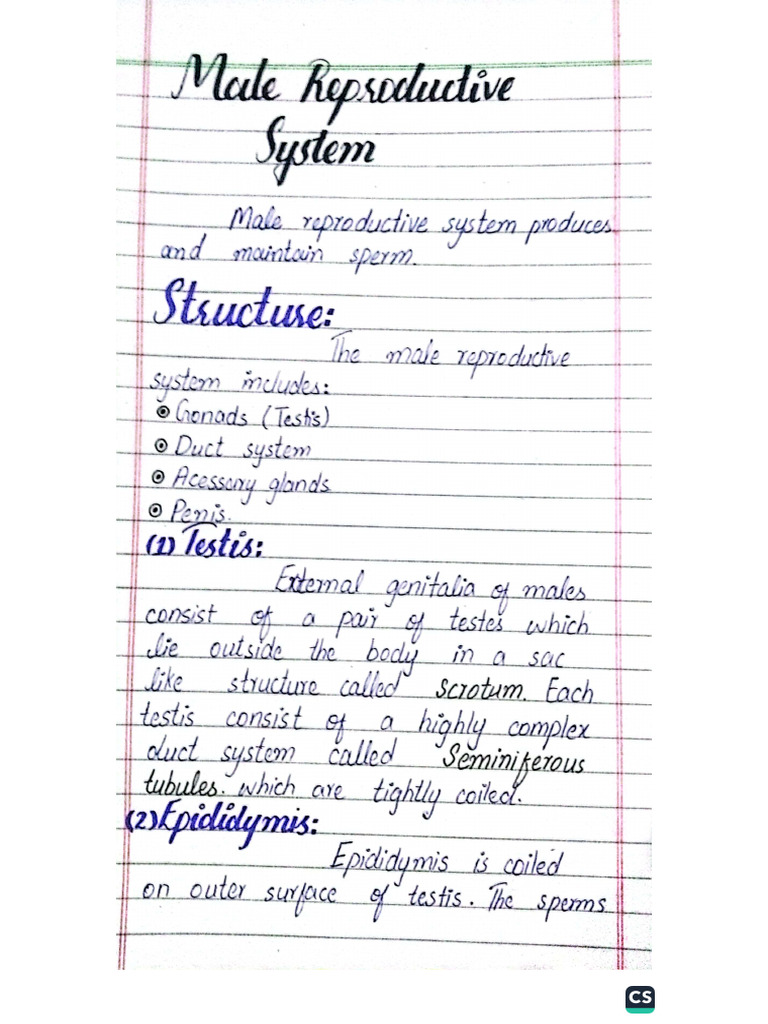 Male Reproductive
System
Male reproductive system produces
and maintain sperm.
Structure:
The male reproductive
system includes:
Gonads (Testis)
Duct system
Acessory glands
Penis.
(1) Testis:
External genitalia of males
consist of a pair of testes which
lie outside the body in a sac
like structure called scrotum. Each
testis consist of a highly complex
duct system called Seminiferous
tubules. which are tightly coiled.
(2) Epididymis:
Epididymis is coiled
on outer surface of testis. The sperms
CS